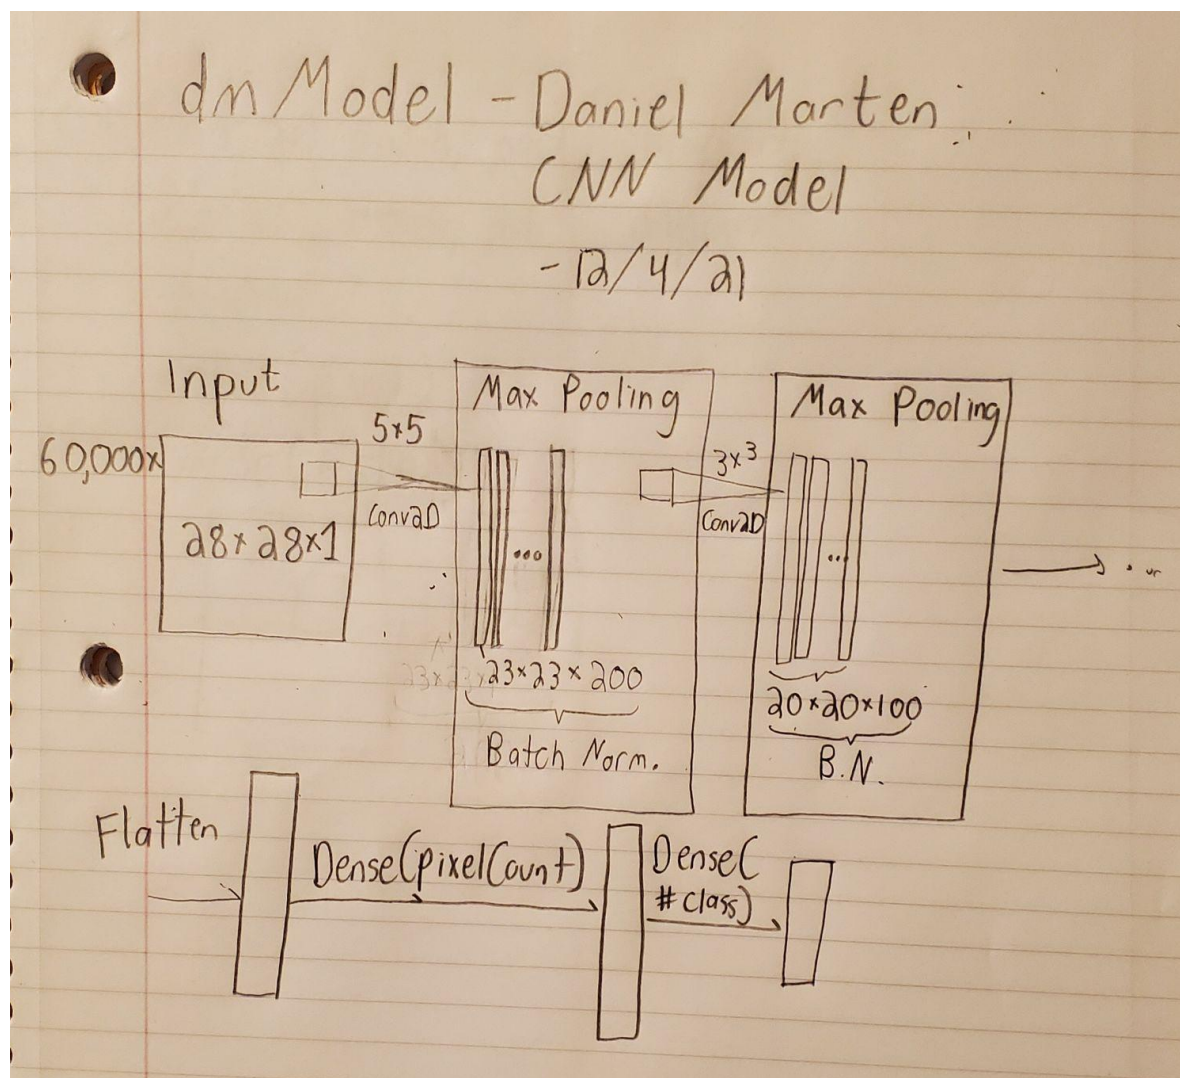 dmModel - Daniel Marten
CNN Model
- 12/4/21
Input
60,000x
28x28x1
5x5
Conv2D
Max Pooling
...
23x23x200
Batch Norm.
3x3
Conv2D
Max Pooling
...
20x20x100
B.N.
Flatten
Dense(pixelCount)
Dense(
#class)